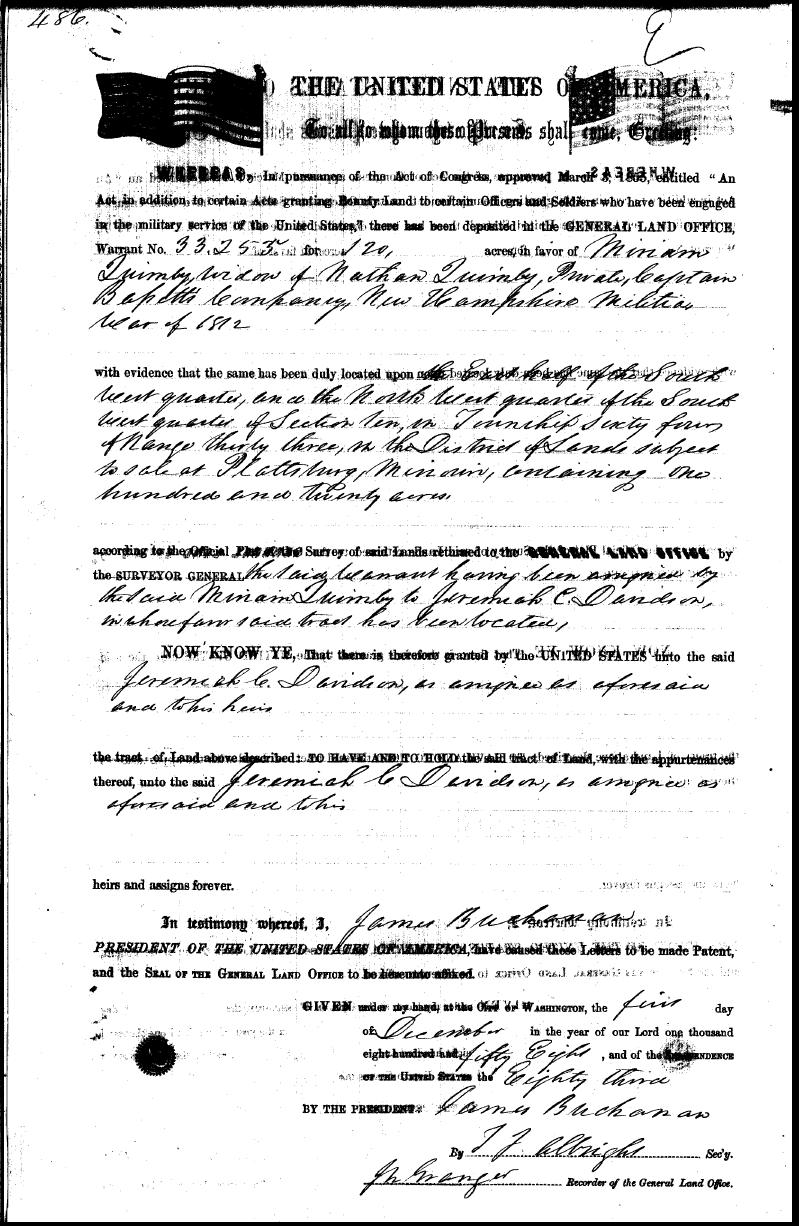 486.
THE UNITED STATES OF AMERICA,
To all to whom these Presents shall come, Greeting:
WHEREAS, In pursuance of the Act of Congress, approved March 3, 1855, entitled "An
Act in addition to certain Acts granting Bounty Land to certain Officers and Soldiers who have been engaged
in the military service of the United States," there has been deposited in the GENERAL LAND OFFICE,
Warrant No. 33.253 for 120, acres, in favor of Miriam
Quimby, widow of Nathan Quimby, Private, Captain
Company, New Hampshire Militia,
War of 1812
with evidence that the same has been duly located upon the East half of the South
West quarter, and the North West quarter of the South
West quarter of Section ten, in Township sixty four,
of Range thirty three, in the District of Lands subject
to sale at Plattsburg, Missouri, containing one
hundred and twenty acres.
according to the Official Plat of the Survey of said Lands returned to the GENERAL LAND OFFICE by
the SURVEYOR GENERAL the said Warrant having been assigned by
the said Miriam Quimby to Jeremiah C. Davidson,
in whose favor said tract has been located,
NOW KNOW YE, That there is therefore granted by the UNITED STATES unto the said
Jeremiah C. Davidson, as assignee as aforesaid
and to his heirs
the tract of Land above described: TO HAVE AND TO HOLD the said tract of Land, with the appurtenances
thereof, unto the said Jeremiah C Davidson, as assignee as
aforesaid and to his
heirs and assigns forever.
In testimony whereof, I, James Buchanan
PRESIDENT OF THE UNITED STATES OF AMERICA, have caused these Letters to be made Patent,
and the SEAL OF THE GENERAL LAND OFFICE to be hereunto affixed.
GIVEN under my hand, at the CITY OF WASHINGTON, the first day
of December in the year of our Lord one thousand
eight hundred and fifty Eight, and of the INDEPENDENCE
OF THE UNITED STATES the Eighty third
BY THE PRESIDENT: James Buchanan
By T J Albright Sec'y.
J N Granger Recorder of the General Land Office.